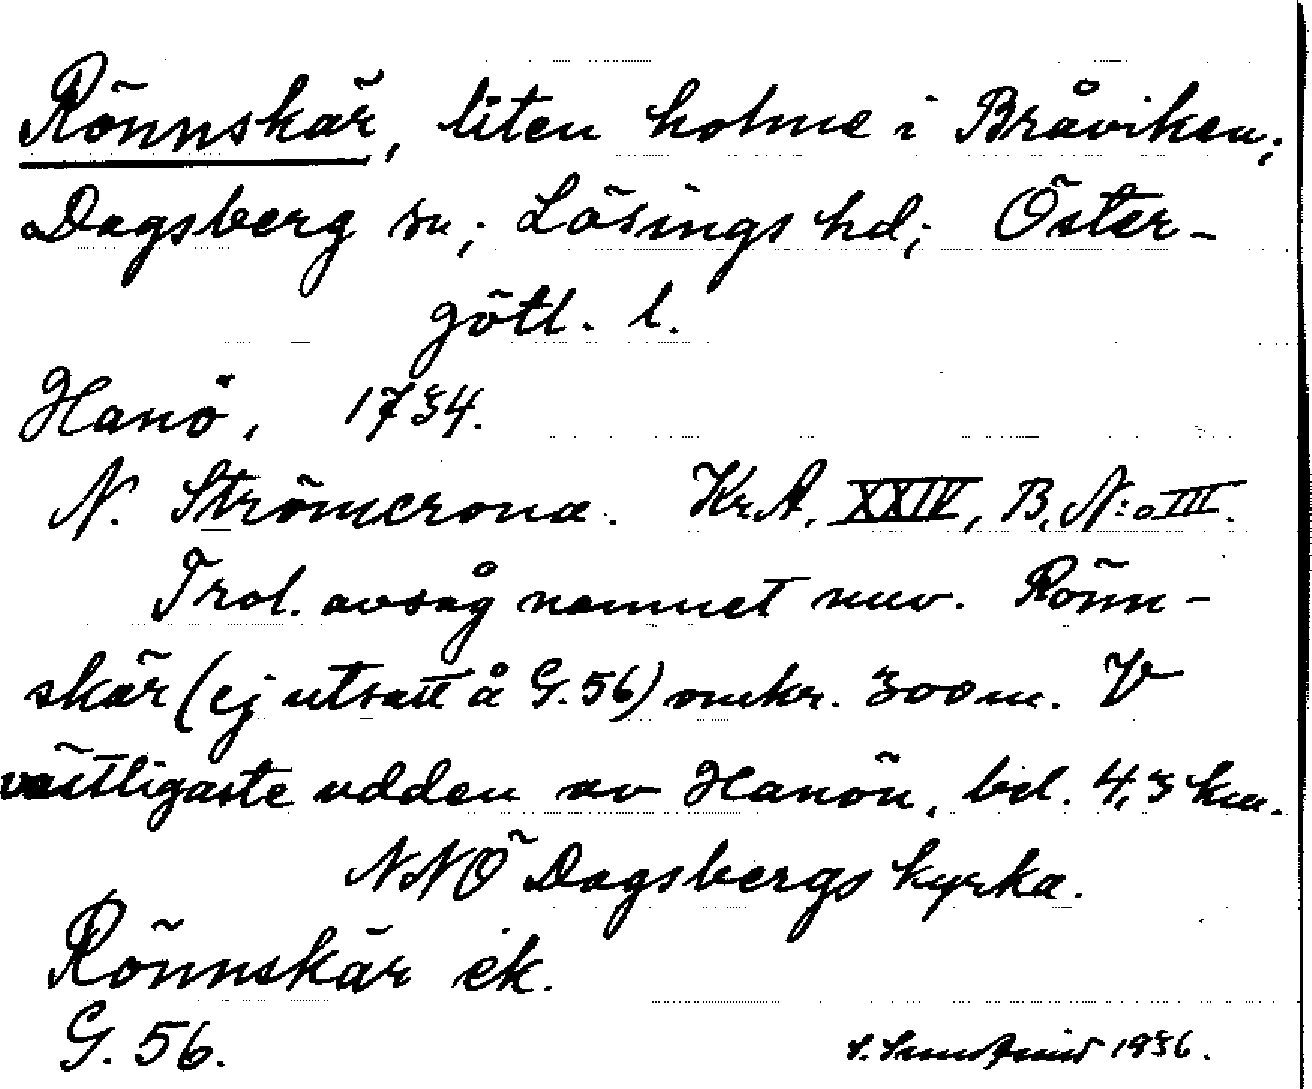 Rönnskär, liten holme i Bråviken;
Dagsberg sn; Lösings hd; Öster-
götl. l.
Hanö, 1734.
N. Strömcrona. Kr.A. XXIV, B. N:o III.
Trol. avsåg namnet nuv. Rönn-
skär (ej utsatt å G. 56) omkr. 300 m. V
västligaste udden av Hanön, bel. 4,3 km.
NNÖ Dagsbergs kyrka.
Rönnskär ek.
G. 56.
1936.